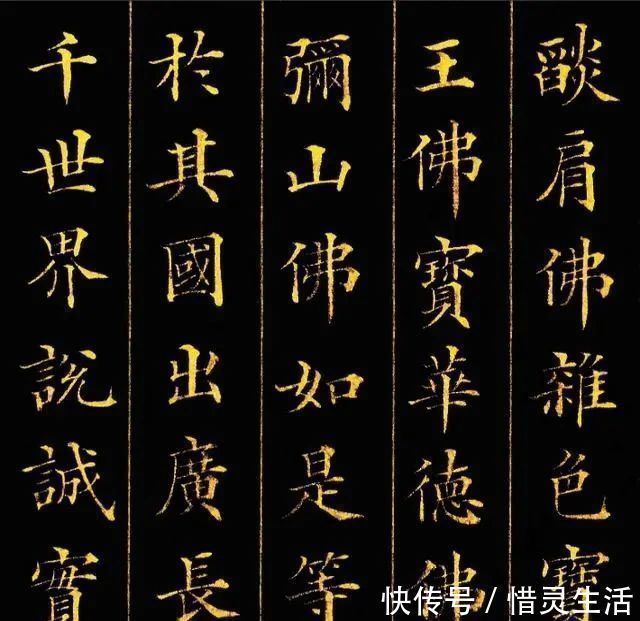 燄肩佛雜色寶
王佛寶華德佛
彌山佛如是等
於其國出廣長
千世界說誠實
快传号 / 惜灵生活